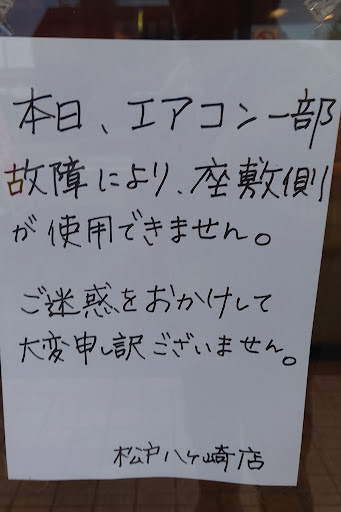 本日、エアコン一部
故障により、座敷側
が使用できません。
ご迷惑をおかけして
大変申し訳ございません。
松戸八ヶ崎店